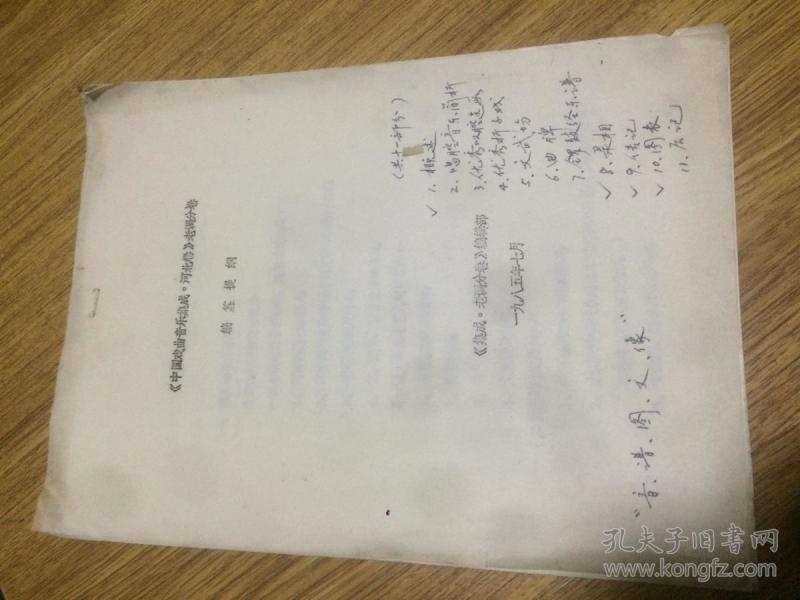 《中国戏曲音乐集成·河北卷》老调分卷
编纂提纲
《集成·老调分卷》编辑部
一九八五年七月
(共十一部分)
✓ 1. 概述
2. 唱腔音乐简析
3. 优秀唱腔选段
4. 优秀折子戏
5. 文武场
6. 曲牌
7. 锣鼓经乐谱
✓ 8. 录相
✓ 9. 传记
✓ 10. 图表
11. 后记
“音、谱、图、文、像”
孔夫子旧书网
www.kongfz.com